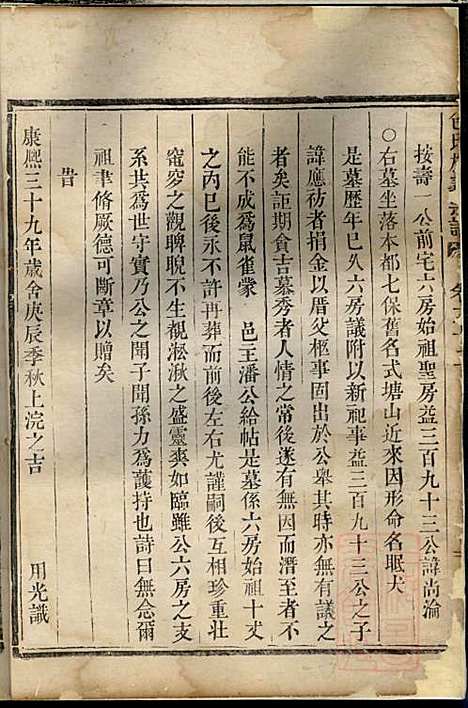 按壽一公前宅六房始祖聖房益三百九十三公諱尚淪
○右墓坐落本都七保舊名式塘山近來因形命名眠犬
是墓歷年已久六房議附以新祀事益三百九十三公之子
諱應祊者捐金以厝父柩事固出於公舉其時亦無有議之
者矣詎期貪吉慕秀者人情之常後遂有無因而潛至者不
能不成爲鼠雀蒙　邑王潘公給帖是墓係六房始祖十丈
之內已後永不許再葬而後左右尤謹嗣後互相珍重壯
窀穸之觀睥睨不生覩淞湫之盛靈爽如臨雖公六房之支
系共爲世守實乃公之聞子聞孫力爲護持也詩曰無念爾
祖聿脩厥德可斷章以贈矣
旹
康熈三十九年歲舍庚辰季秋上浣之吉
用光識